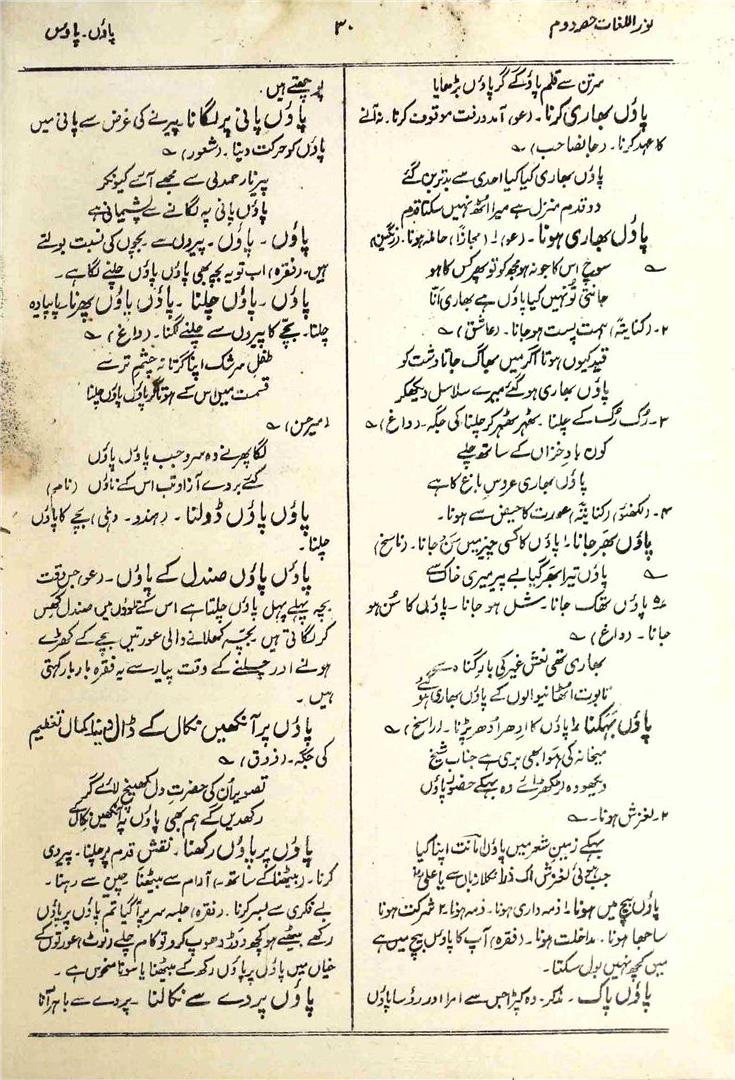 نور اللغات حصہ دوم
۳۰
پاؤں۔ پاؤس
سرتن سے قلم پاؤں کے گر پاؤں بڑھایا
پاؤں بھاری کرنا۔ (عو) آمد و رفت موقوف کرنا۔ نہ آنے
کا عہد کرنا۔ (جانصاحب) ؎
پاؤں بھاری کیا کیا احدی سے بدتر بن گئے
دو قدم منزل ہے میرا اٹھ نہیں سکتا قدم
پاؤں بھاری ہونا۔ (عو) ۱۔ (مجازاً) حاملہ ہونا۔ (رنگین)
؎ سوچ اس کا جو نہ ہو مجھ کو تو پھر کس کا ہو
جانتی تو نہیں کیا پاؤں ہے بھاری انّا
۲۔ (کنایتہً) ہمت پست ہو جانا۔ (عاشق) ؎
قید کیوں ہوتا اگر میں بھاگ جاتا دشت کو
پاؤں بھاری ہو گئے میرے سلاسل دیکھ کر
۳۔ رُک رُک کے چلنا۔ ٹھہر ٹھہر کر چلنا کی جگہ۔ (داغ) ؎
کون بادِ خزاں کے ساتھ چلے
پاؤں بھاری عروسِ باغ کا ہے
۴۔ (لکھنؤ) (کنایتہً) عورت کا حیض سے ہونا۔
پاؤں بھر جانا۔ ۱۔ پاؤں کا کسی چیز میں سَن جانا۔ (ناسخ)
؎ پاؤں تیرا بھر گیا بے پیر میری خاک سے
۲۔ پاؤں تھک جانا۔ شل ہو جانا۔ پاؤں کا سُن ہو
جانا۔ (داغ) ؎
بھاری تھی نعش غیر کی بارِ گناہ سے
تابوت اٹھانیوالوں کے پاؤں بھاری ہو گئے
پاؤں بہکنا۔ ۱۔ پاؤں کا ادھر اُدھر پڑنا۔ (راسخ) ؎
میخانہ کی ہوا بھی بری ہے جناب شیخ
دیکھو وہ لڑکھڑائے وہ بہکے حضور پاؤں
۲۔ لغزش ہونا۔ ؎
بہکے زمینِ شعر میں پاؤں امانت اپنا کیا
جب ہوئی لغزش اک ذرا نکلا زباں سے یا علی
پاؤں بیچ میں ہونا۔ ۱۔ ذمہ داری ہونا۔ ذمہ ہونا۔ ۲۔ شرکت ہونا
ساجھا ہونا۔ مداخلت ہونا۔ (فقرہ) آپ کا پاؤں بیچ میں ہے
میں کچھ نہیں بول سکتا۔
پاؤں پاک۔ مذکر۔ وہ کپڑا جس سے امرا اور رؤسا پاؤں
پوچھتے ہیں۔
پاؤں پانی پر لگانا۔ پیرنے کی غرض سے پانی میں
پاؤں کو حرکت دینا۔ (شعور) ؎
پیرنا رحمدلی سے مجھے آئے کیونکر
پاؤں پانی پہ لگانے سے پشیمانی ہے
پاؤں۔ پاؤں۔ پیروں سے۔ بچوں کی نسبت بولتے
ہیں۔ (فقرہ) اب تو یہ بچہ بھی پاؤں پاؤں چلنے لگا ہے۔
پاؤں۔ پاؤں چلنا۔ پاؤں پاؤں پھرنا۔ پاپیادہ
چلنا۔ بچّے کا پیروں سے چلنے لگنا۔ (داغ) ؎
طفلِ سرشک اپنا گرتا نہ چشمِ تر سے
قسمت میں اس کے ہوتا گر پاؤں پاؤں چلنا
(امیر حسن) ؎
لگا پھرنے وہ سرو جب پاؤں پاؤں
کئے بردے آزاد تب اس کے ناؤں (نام)
پاؤں پاؤں ڈولنا۔ (ہندو۔ دہلی) بچے کا پاؤں
چلنا۔
پاؤں پاؤں صندل کے پاؤں۔ (عو) جس وقت
بچہ پہلے پہل پاؤں چلتا ہے اس کے تلووں میں صندل گھس
کر لگاتی ہیں۔ بچّہ کھلانے والی عورتیں بچے کے کھڑے
ہونے اور چلنے کے وقت پیار سے یہ فقرہ بار بار کہتی
ہیں۔
پاؤں پر آنکھیں نکال کے ڈال دینا کمال تعظیم
کی جگہ۔ (ذوق) ؎
تصویر اُن کی حضرتِ دل کھینچ لائے گر
رکھدیں گے ہم بھی پاؤں پہ آنکھیں نکال کے
پاؤں پر پاؤں رکھنا۔ نقش قدم پر چلنا۔ پیروی
کرنا۔ (بیٹھنا کے ساتھ۔) آرام سے بیٹھنا۔ چین سے رہنا۔
بے فکری سے بسر کرنا۔ (فقرہ) جلسہ سر پر آ گیا تم پاؤں پر پاؤں
رکھے بیٹھے ہو کچھ دوڑ دھوپ کرو تو کام چلے (نوٹ) عورتوں کے
خیال میں پاؤں پر پاؤں رکھ کے بیٹھنا یا سونا منحوس ہے۔
پاؤں پردے سے نکالنا۔ پردے سے باہر آنا